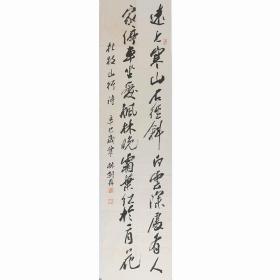 远上寒山石径斜白云深处有人
家停车坐爱枫林晚霜叶红于二月花
杜牧山行诗